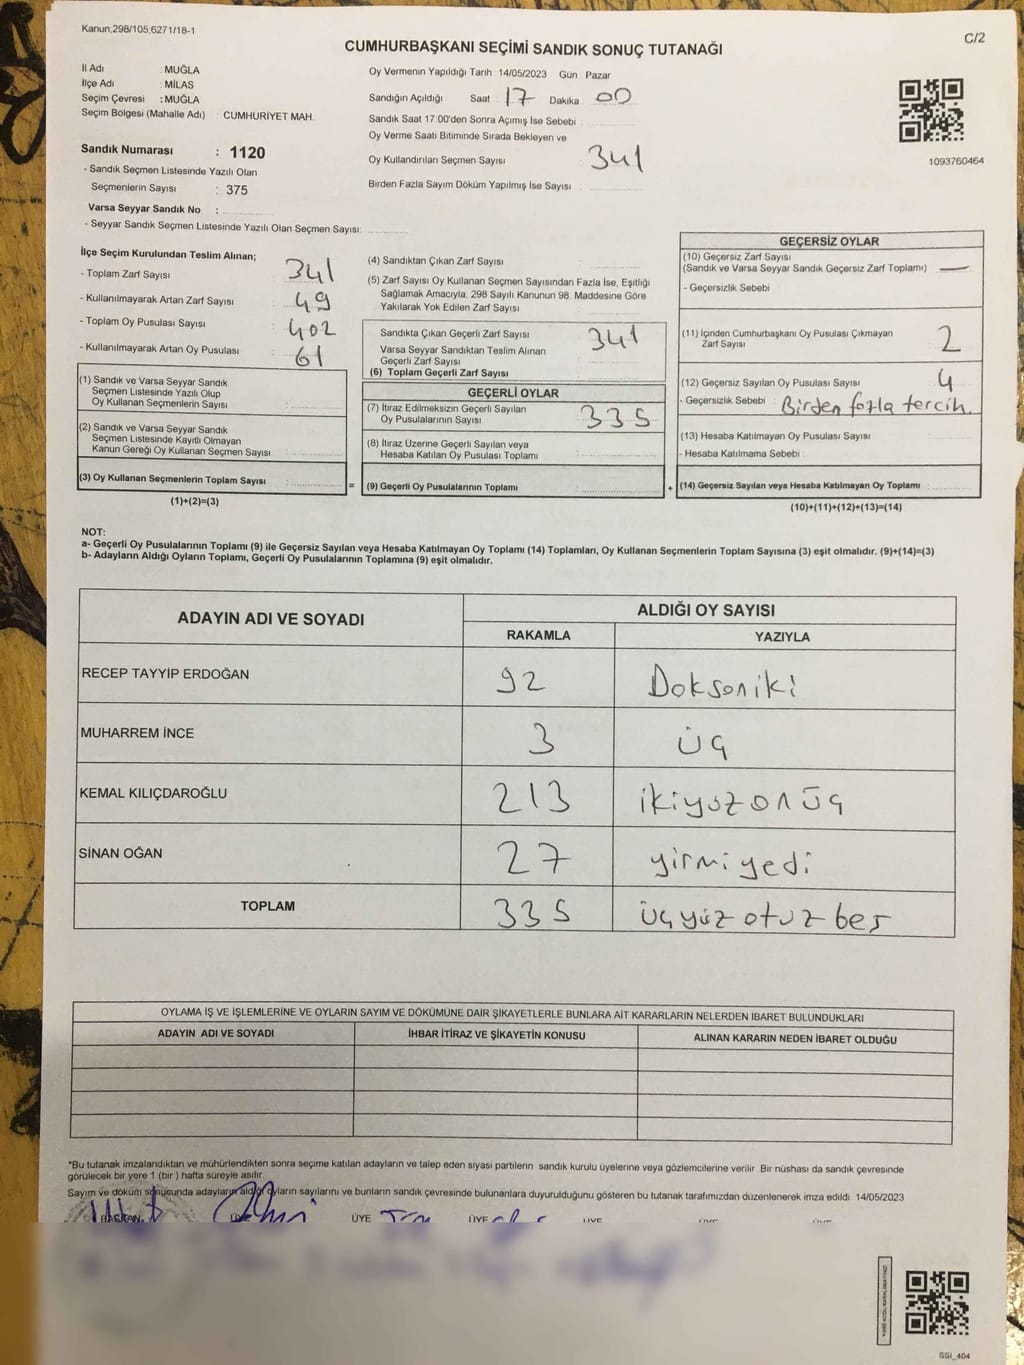 Kanun;298/105,6271/18-1
C/2
CUMHURBAŞKANI SEÇİMİ SANDIK SONUÇ TUTANAĞI
İl Adı : MUĞLA
İlçe Adı : MİLAS
Seçim Çevresi : MUĞLA
Seçim Bölgesi (Mahalle Adı) : CUMHURİYET MAH.
Sandık Numarası : 1120
- Sandık Seçmen Listesinde Yazılı Olan
Seçmenlerin Sayısı : 375
Varsa Seyyar Sandık No :
- Seyyar Sandık Seçmen Listesinde Yazılı Olan Seçmen Sayısı:
Oy Vermenin Yapıldığı Tarih : 14/05/2023 Gün : Pazar
Sandığın Açıldığı Saat : 17 Dakika : 00
Sandık Saat 17:00'den Sonra Açımış İse Sebebi :
Oy Verme Saati Bitiminde Sırada Bekleyen ve
Oy Kullandırılan Seçmen Sayısı : 341
Birden Fazla Sayım Döküm Yapılmış İse Sayısı :
1093760464
İlçe Seçim Kurulundan Teslim Alınan;
- Toplam Zarf Sayısı : 341
- Kullanılmayarak Artan Zarf Sayısı : 49
- Toplam Oy Pusulası Sayısı : 402
- Kullanılmayarak Artan Oy Pusulası : 61
(1) Sandık ve Varsa Seyyar Sandık
Seçmen Listesinde Yazılı Olup
Oy Kullanan Seçmenlerin Sayısı :
(2) Sandık ve Varsa Seyyar Sandık
Seçmen Listesinde Kayıtlı Olmayan
Kanun Gereği Oy Kullanan Seçmen Sayısı :
(3) Oy Kullanan Seçmenlerin Toplam Sayısı :
(1)+(2)=(3)
=
(4) Sandıktan Çıkan Zarf Sayısı :
(5) Zarf Sayısı Oy Kullanan Seçmen Sayısından Fazla İse, Eşitliği
Sağlamak Amacıyla, 298 Sayılı Kanunun 98. Maddesine Göre
Yakılarak Yok Edilen Zarf Sayısı :
Sandıkta Çıkan Geçerli Zarf Sayısı : 341
Varsa Seyyar Sandıktan Teslim Alınan
Geçerli Zarf Sayısı :
(6) Toplam Geçerli Zarf Sayısı :
GEÇERLİ OYLAR
(7) İtiraz Edilmeksizin Geçerli Sayılan
Oy Pusulalarının Sayısı : 335
(8) İtiraz Üzerine Geçerli Sayılan veya
Hesaba Katılan Oy Pusulası Toplamı :
(9) Geçerli Oy Pusulalarının Toplamı :
+
GEÇERSİZ OYLAR
(10) Geçersiz Zarf Sayısı
(Sandık ve Varsa Seyyar Sandık Geçersiz Zarf Toplamı) : —
- Geçersizlik Sebebi :
(11) İçinden Cumhurbaşkanı Oy Pusulası Çıkmayan
Zarf Sayısı : 2
(12) Geçersiz Sayılan Oy Pusulası Sayısı : 4
- Geçersizlik Sebebi : Birden fazla tercih.
(13) Hesaba Katılmayan Oy Pusulası Sayısı :
- Hesaba Katılmama Sebebi :
(14) Geçersiz Sayılan veya Hesaba Katılmayan Oy Toplamı :
(10)+(11)+(12)+(13)=(14)
NOT:
a- Geçerli Oy Pusulalarının Toplamı (9) ile Geçersiz Sayılan veya Hesaba Katılmayan Oy Toplamı (14) Toplamları, Oy Kullanan Seçmenlerin Toplam Sayısına (3) eşit olmalıdır. (9)+(14)=(3)
b- Adayların Aldığı Oyların Toplamı, Geçerli Oy Pusulalarının Toplamına (9) eşit olmalıdır.
ADAYIN ADI VE SOYADI
ALDIĞI OY SAYISI
RAKAMLA YAZIYLA
RECEP TAYYİP ERDOĞAN 92 Doksoniki
MUHARREM İNCE 3 üç
KEMAL KILIÇDAROĞLU 213 ikiyüzonüç
SİNAN OĞAN 27 yirmiyedi
TOPLAM 335 üçyüzotuzbeş
OYLAMA İŞ VE İŞLEMLERİNE VE OYLARIN SAYIM VE DÖKÜMÜNE DAİR ŞİKAYETLERLE BUNLARA AİT KARARLARIN NELERDEN İBARET BULUNDUKLARI
ADAYIN ADI VE SOYADI İHBAR İTİRAZ VE ŞİKAYETİN KONUSU ALINAN KARARIN NEDEN İBARET OLDUĞU
*Bu tutanak imzalandıktan ve mühürlendikten sonra seçime katılan adayların ve talep eden siyasi partilerin sandık kurulu üyelerine veya gözlemcilerine verilir. Bir nüshası da sandık çevresinde
görülecek bir yere 1 (bir ) hafta süreyle asılır.
Sayım ve döküm sonucunda adayların aldığı oyların sayılarını ve bunların sandık çevresinde bulunanlara duyurulduğunu gösteren bu tutanak tarafımızdan düzenlenerek imza edildi. 14/05/2023
BAŞKAN ÜYE ÜYE ÜYE ÜYE ÜYE ÜYE
SSI_404